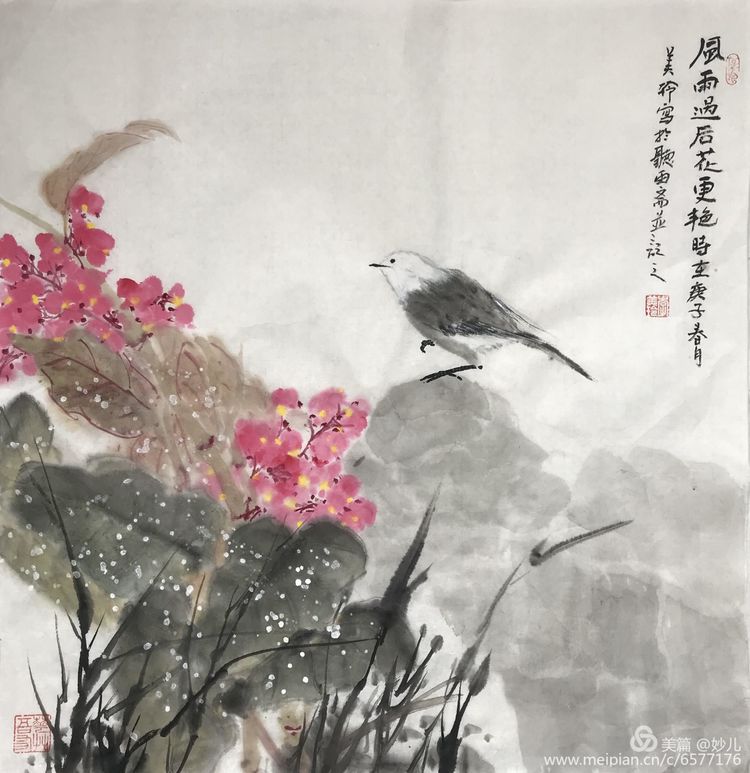 风雨过后花更艳時在庚子春月
美玲寫於聽雨斋並記之
美篇 @妙儿
www.meipian.cn/c/6577176